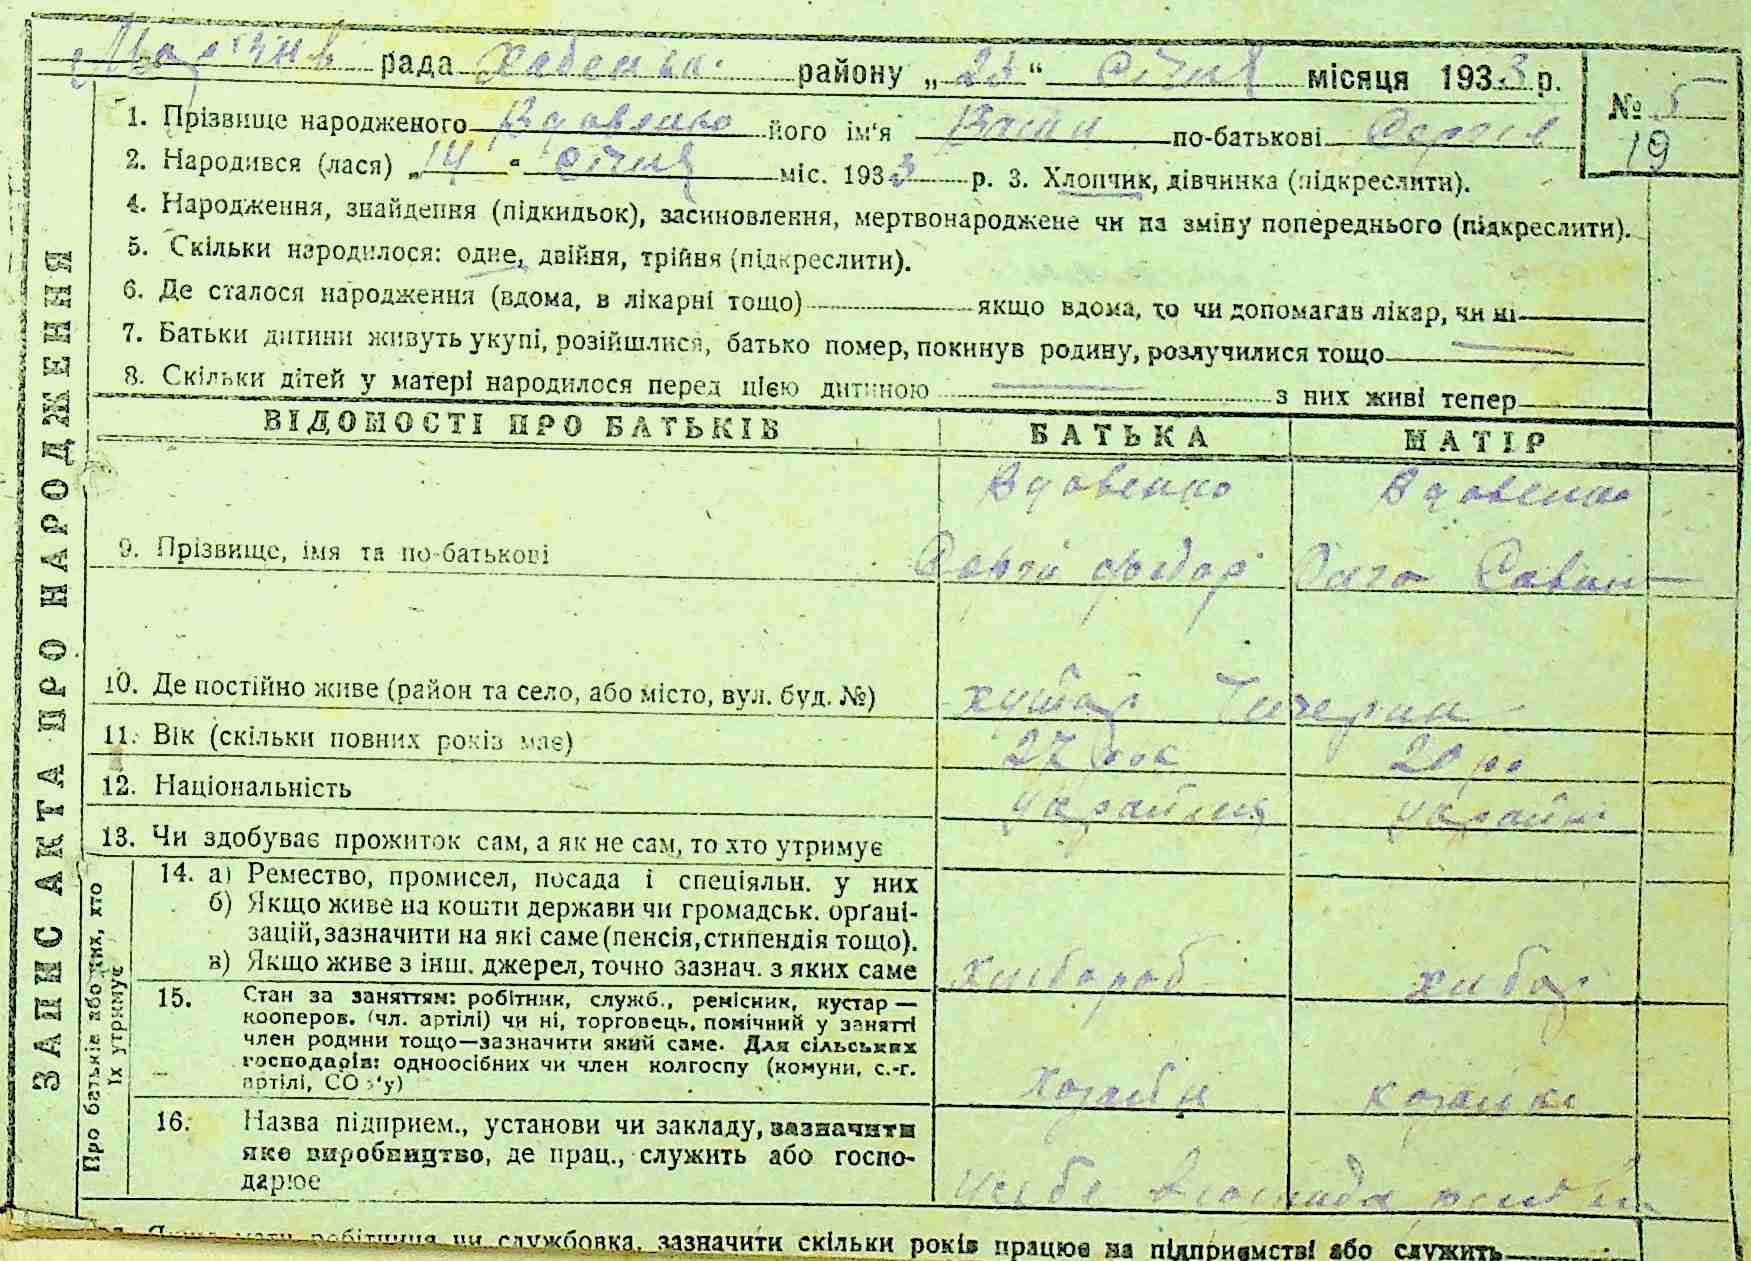 рада Хабенськ. району „23“ Січня місяця 1933 р.
№ 5
19
1. Прізвище народженого Вдовенко його ім'я Васил по-батькові Сергіев
2. Народився (лася) „14“ Січня міс. 1933 р. 3. Хлопчик, дівчинка (підкреслити).
4. Народження, знайдення (підкидьок), засиновлення, мертвонароджене чи на зміну попереднього (підкреслити).
5. Скільки народилося: одне, двійня, трійня (підкреслити).
6. Де сталося народження (вдома, в лікарні тощо) якщо вдома, то чи допомагав лікар, чи ні
7. Батьки дитини живуть укупі, розійшлися, батько помер, покинув родину, розлучилися тощо
8. Скільки дітей у матері народилося перед цією дитиною з них живі тепер
ВІДОМОСТІ ПРО БАТЬКІВ БАТЬКА МАТІР
Вдовенко Вдовенко
9. Прізвище, імя та по-батькові Сергій Федор
10. Де постійно живе (район та село, або місто, вул. буд. №) хутар
11. Вік (скільки повних років має) 27 рок 20 ро
12. Національність україня україн
13. Чи здобуває прожиток сам, а як не сам, то хто утримує
14. а) Ремество, промисел, посада і спеціяльн. у них
б) Якщо живе на кошти держави чи громадськ. орґані-
зацій, зазначити на які саме (пенсія, стипендія тощо).
в) Якщо живе з інш. джерел, точно зазнач. з яких саме хлібороб хлібор
15. Стан за заняттям: робітник, служб., ремісник, кустар —
кооперов. (чл. артілі) чи ні, торговець, помічний у занятті
член родини тощо—зазначити який саме. Для сільських
господарів: одноосібних чи член колгоспу (комуни, с.-г.
артілі, СОЗ'у) хозяїн
16. Назва підприєм., установи чи закладу, зазначити
яке виробництво, де прац., служить або госпо-
дарює
мати робітниця чи службовка, зазначити скільки років працює на підприємстві або служить
ЗАПИС АКТА ПРО НАРОДЖЕННЯ
Про батьків або тих, хто
їх утримує